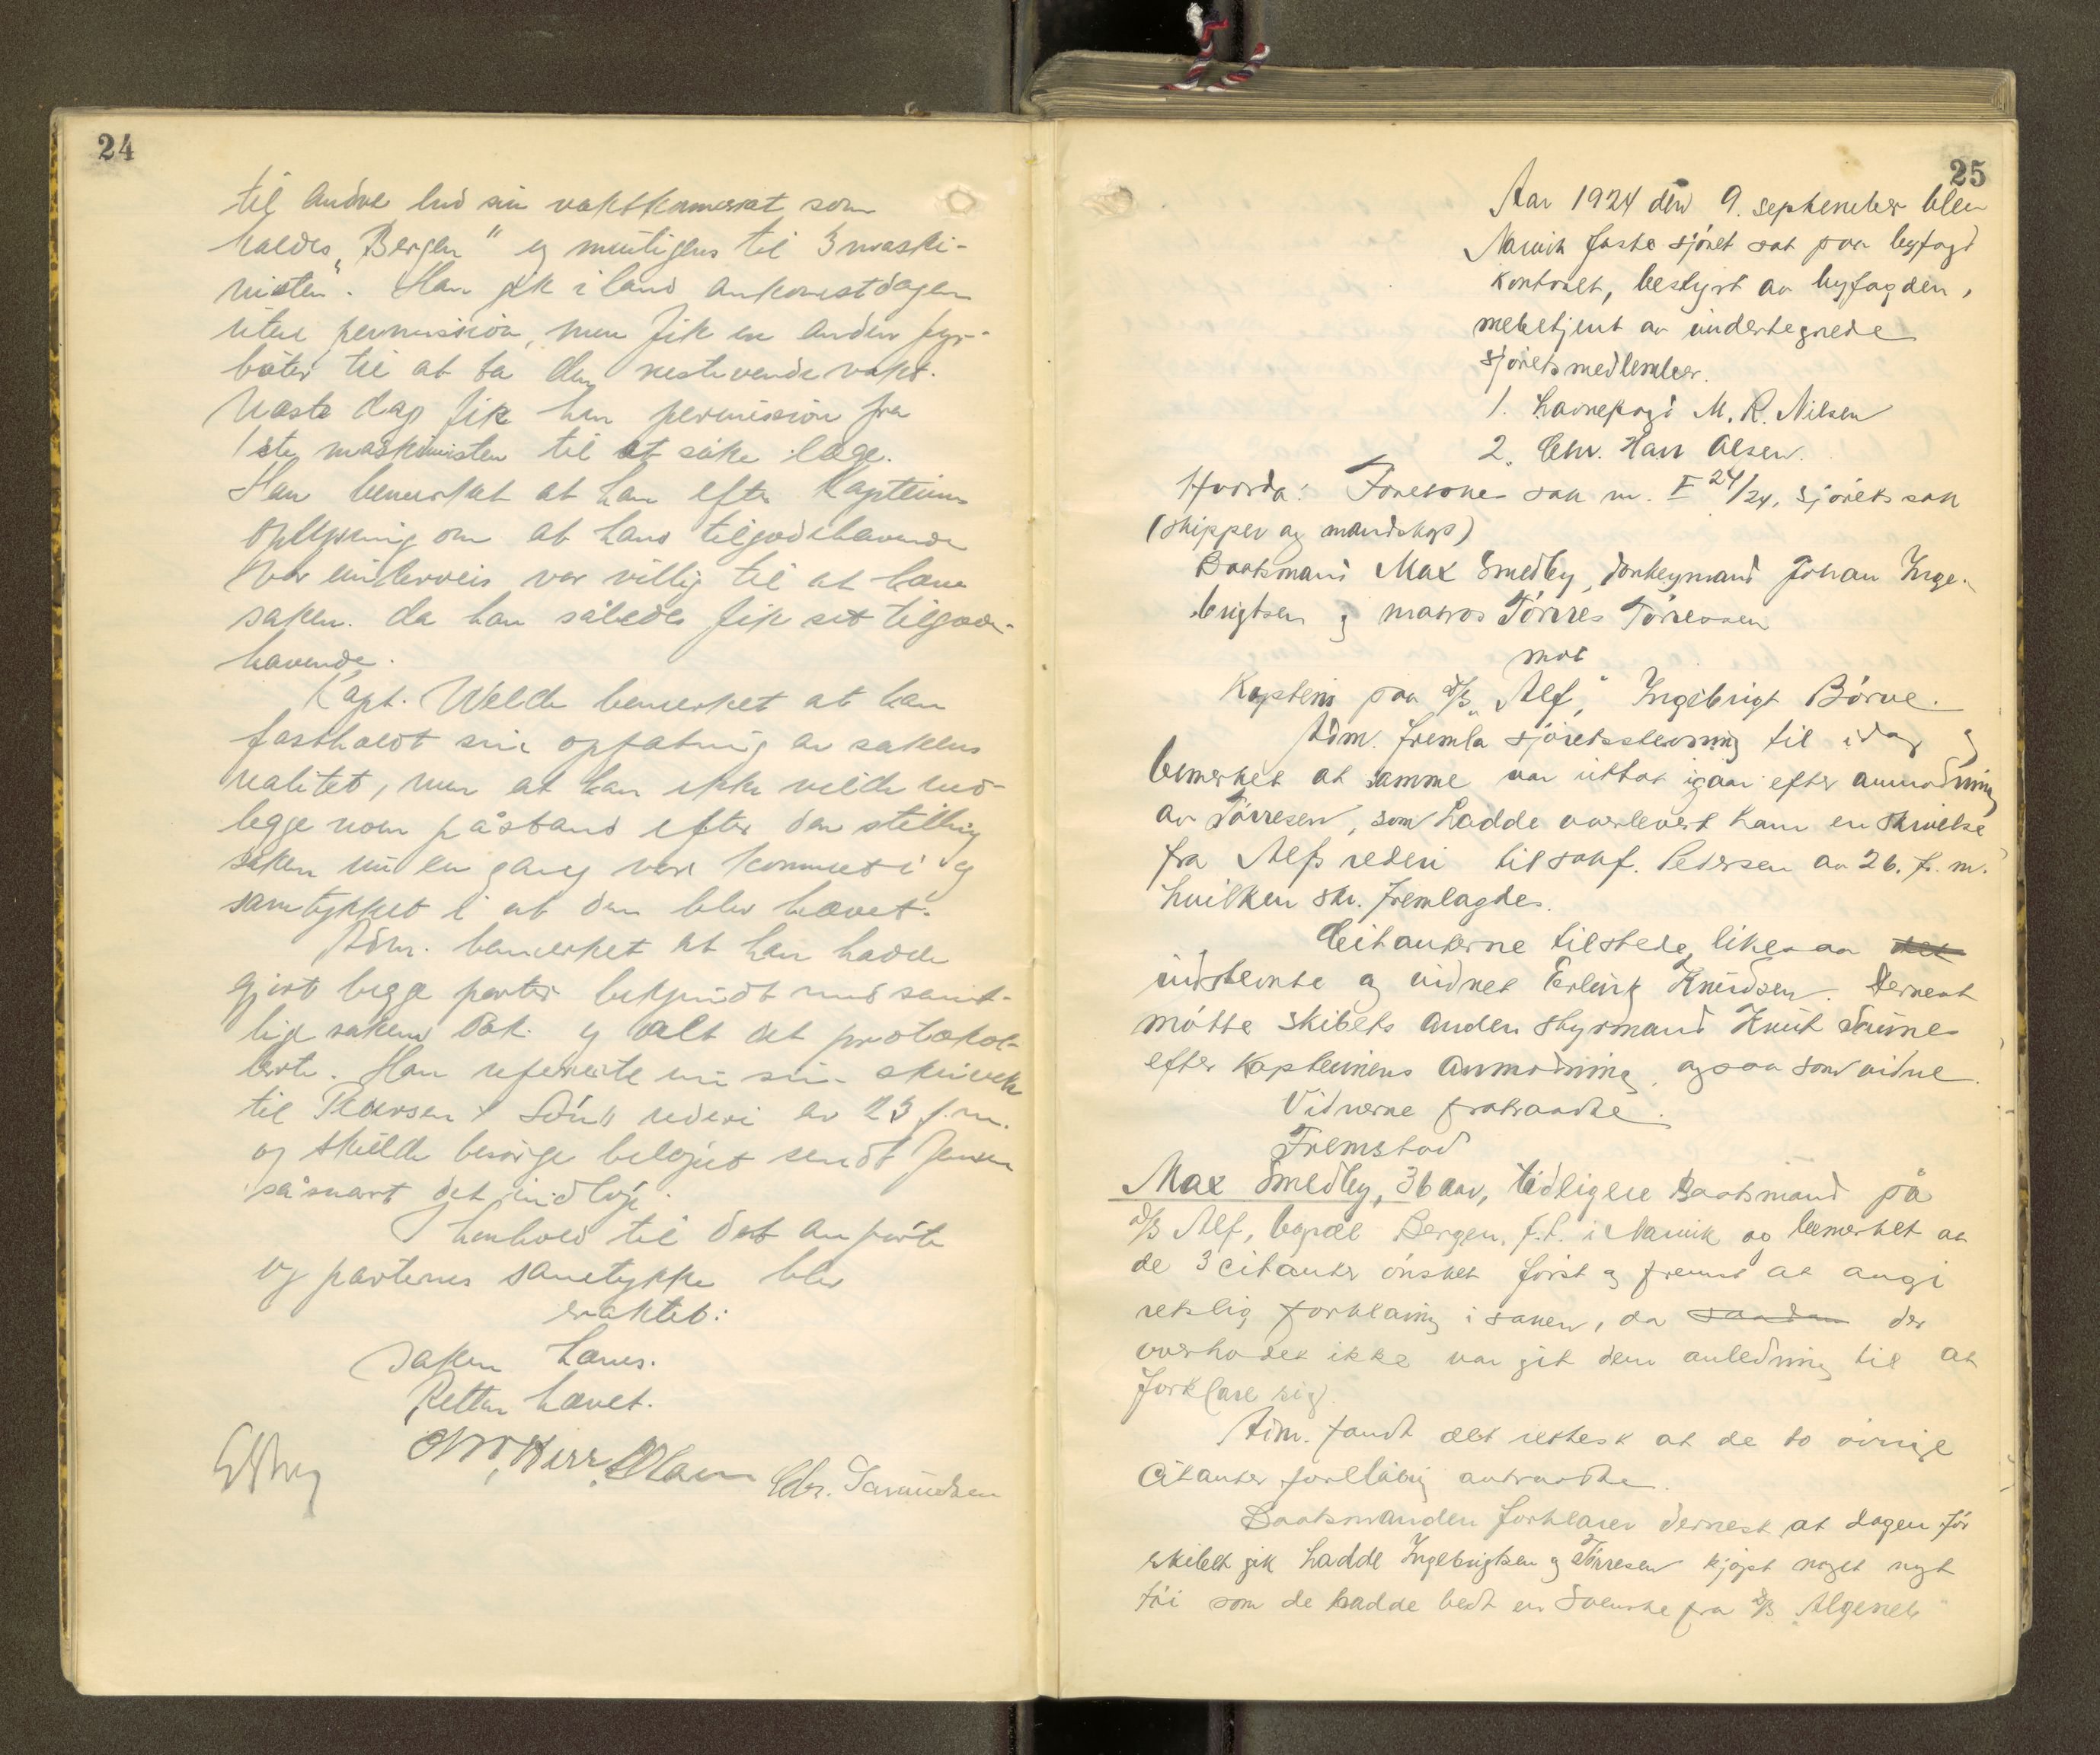 24
til andre end sin vaktkamerat som
kaldes „Bergen" og muligens til 3 maski-
nisten". Han gik i land ankomstdagen
uten permission, men fik en anden fyr-
böter til at ta den nestevende vakt.
Næste dag fik han permission fra
1ste maskinisten til at söke læge.
Han bemerket at han efter kapteinens
oplysning om at hans tilgodehavende
var underveis var villig til at hæve
saken. da han således fik sit tilgode-
havende.
Kapt. Welde bemerket at han
fastholdt sin opfatning av sakens
realitet, men at han ikke vilde ned-
legge noen påstand efter den stilling
saken nu en gang var kommet i og
samtykket i at den blev hævet.
Adm. bemerket at han hadde
gjort begge parter bekjendt med samt-
lige sakens dok. og alt det protokol-
lerte. Han refererte nu sin skrivelse
til Pedersen & Söns rederi av 23 f. m.
og skulde besörge belöpet sendt Jensen
såsnart det indlöp.
I henhold til det anförte
og partenes samtykke blev
eraktet:
Saken hæves.
Retten hævet.
Chr. Samuelsen
25
Aar 1924 den 9. september blev
Narvik faste sjöret sat paa byfogd
kontoret, bestyrt av byfogden,
mebetjent av undertegnede
sjöretsmedlemmer.
1. Havnefogd M. R. Nilsen
2. Chr. Harr Olsen.
Hvorda: Foretones sak nr. I 24/24, sjörets sak
(skipper og mandskap)
Baatsmand Max Smedby, donkeymand Johan Inge-
brigtsen og matros Törres Törressen
mot
Kaptein paa d/s „Alf", Ingebrigt Börve.
Adm. fremla sjöretsstevning til idag og
bemerket at samme var uttat igaar efter anmodning
av Törresen, som hadde overlevert ham en skrivelse
fra Alfs rederi til sakf. Pedersen av 26. f. m.
hvilken skr. fremlagdes.
Citanterne tilstede, likesaa det
indstevnte og vidnet Erling Knudsen. Dernest
mötte skibets anden styrmand Knut Saunes
efter Kapteinens anmodning, ogsaa som vidne.
Vidnerne fratraadte.
Fremstod
Max Smedby, 36 aar, tidligere Baatsmand på
d/s Alf, bopæl Bergen, f.t. i Narvik og bemerket at
de 3 citanter önsket först og fremst at angi
retslig forklaring i saken, da saadan der
overhodet ikke var git dem anledning til at
forklare sig.
Adm. fandt det rettest at de to övrige
Citanter forelöbig antraadte.
Baatsmanden forklarer dernest at dagen för
skibet gik hadde Ingebrigtsen og Törresen kjöpt noget nyt
töi som de hadde bedt en Svenske fra d/s „Algeriet"